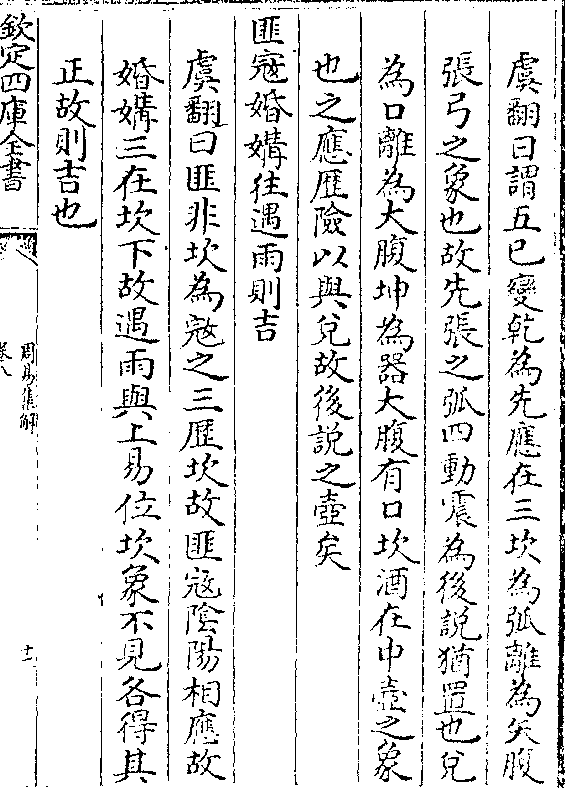 虞翻曰謂五已變乾為先應在三坎為弧離為矢腹
張弓之象也故先張之弧四動震為後說猶置也兌
為口離為大腹坤為器大腹有口坎酒在中壺之象
也之應歴險以與兌故後說之壺矣
匪寇婚媾往遇雨則吉
虞翻曰匪非坎為寇之三歴坎故匪寇陰陽相應故
婚媾三在坎下故遇雨與上易位坎象不見各得其
正故則吉也
欽定四庫全書
周易集解
卷八
十一